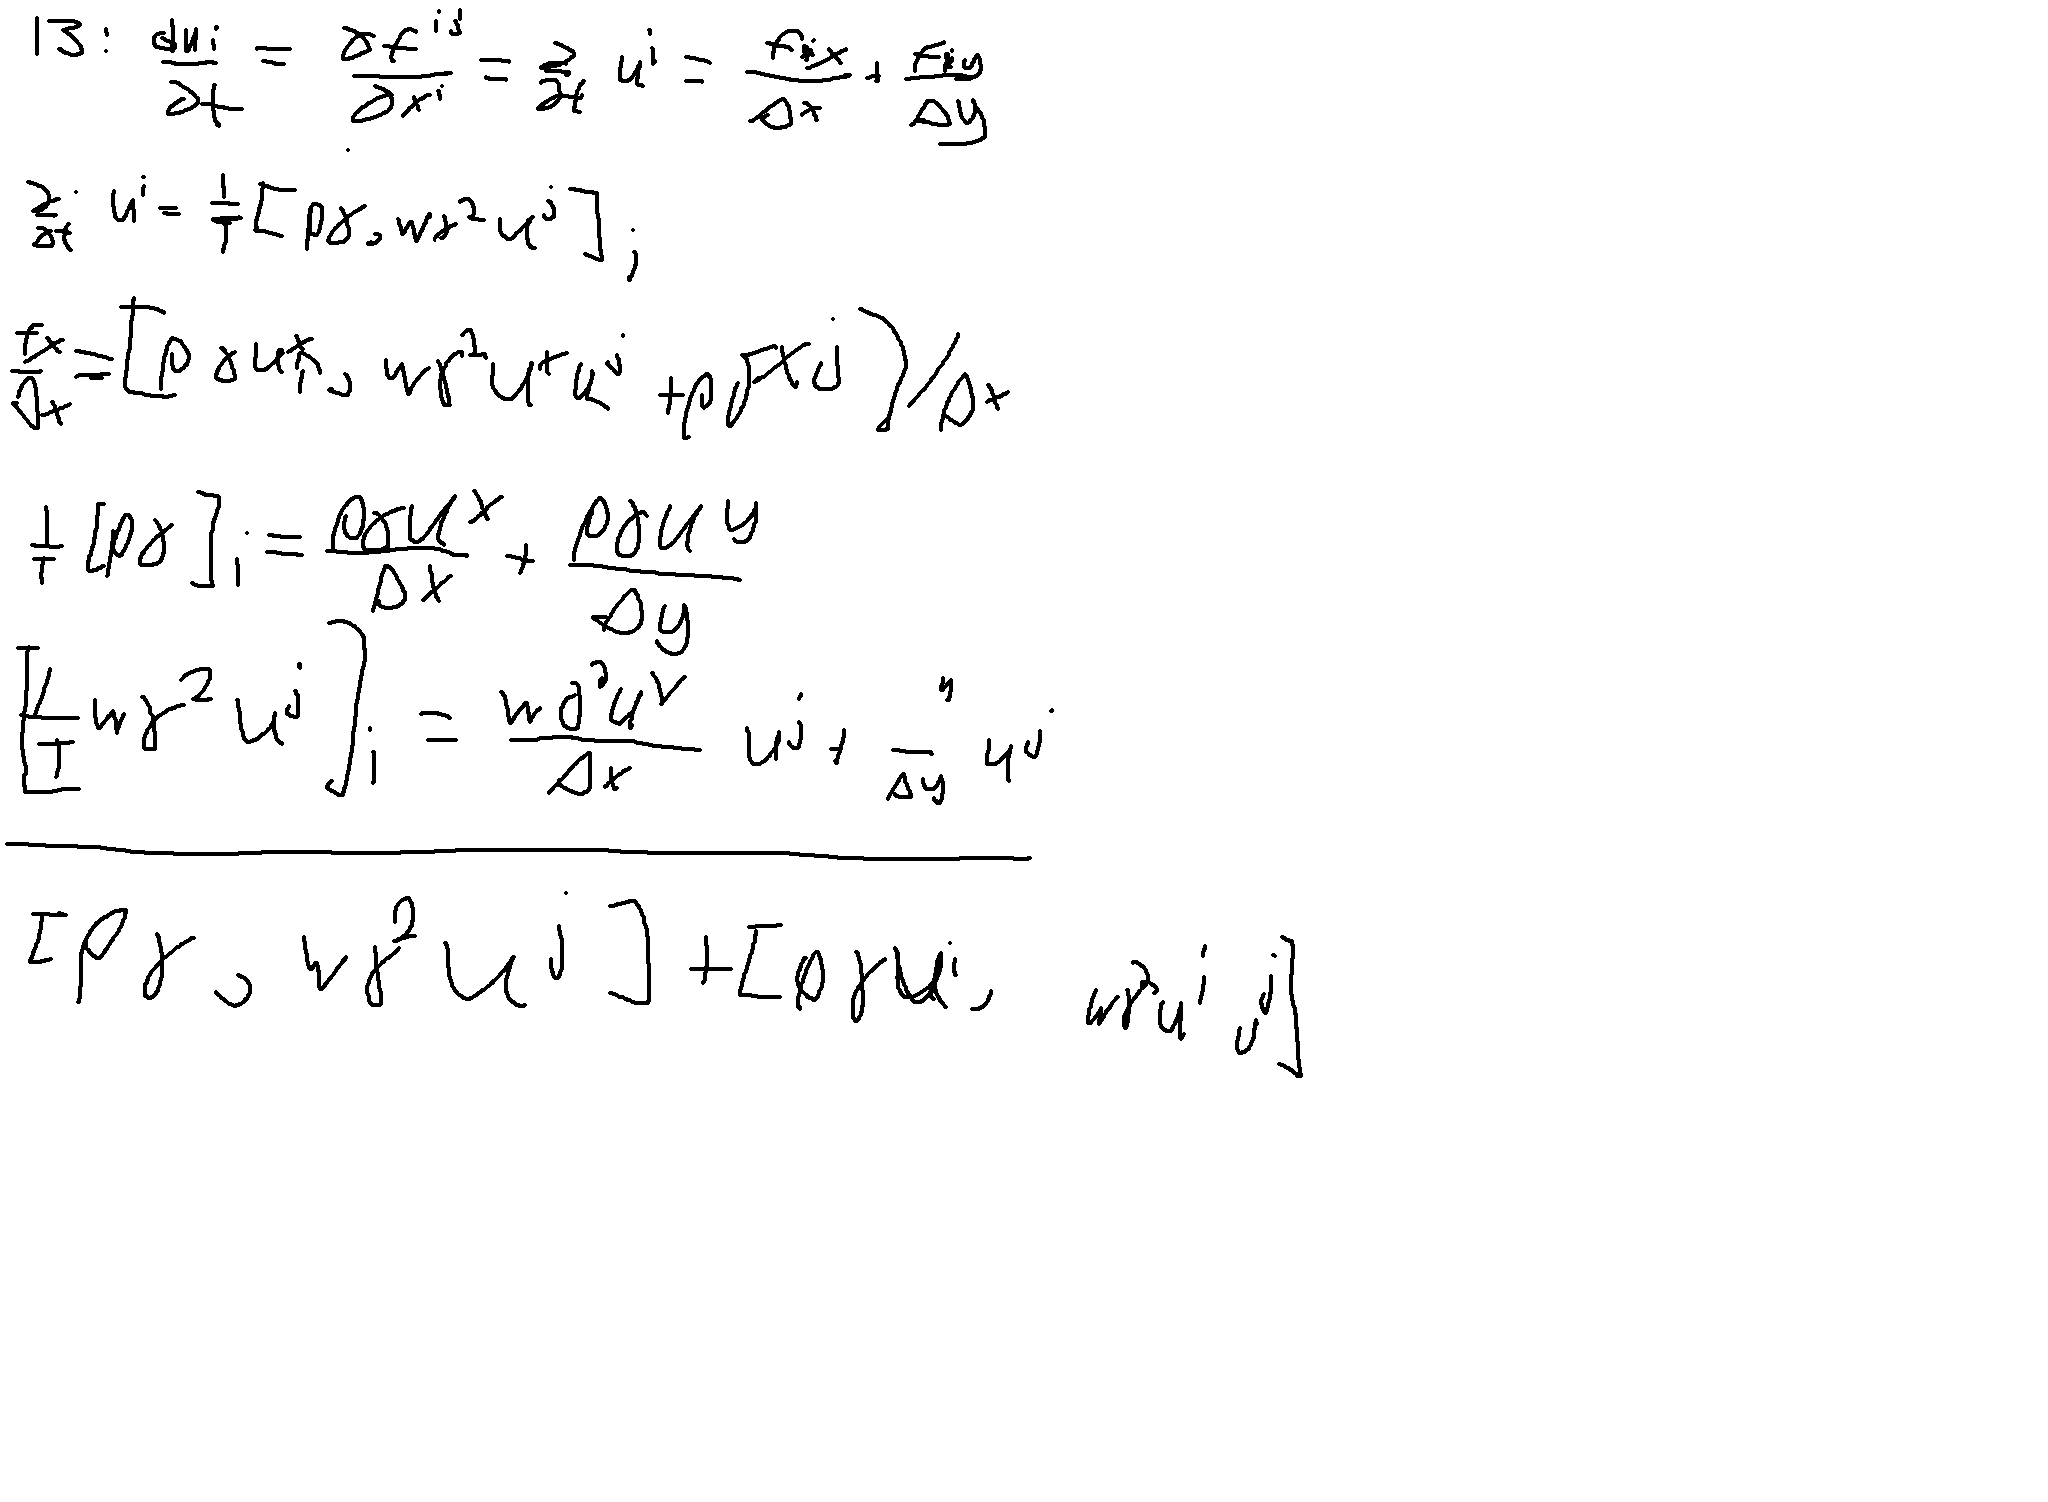 13: ∂u^i/∂t = ∂f^{ij}/∂x^i = ∂/∂t u^i = F^{ix}/Δx + F^{iy}/Δy
∂/∂t u^i = 1/T [ργ, wγ^2 u^j]_i
F^x/Δx = [ργu^x, wγ^2 u^x u^j + pδ^{xj}]/Δx
1/T [ργ]_i = ργu^x/Δx + ργu^y/Δy
[1/T wγ^2 u^j]_i = wγ^2u^x/Δx u^j + "/Δy u^j
[ργ, wγ^2 u^j] + [ργu^i, wγ^2u^i u^j]